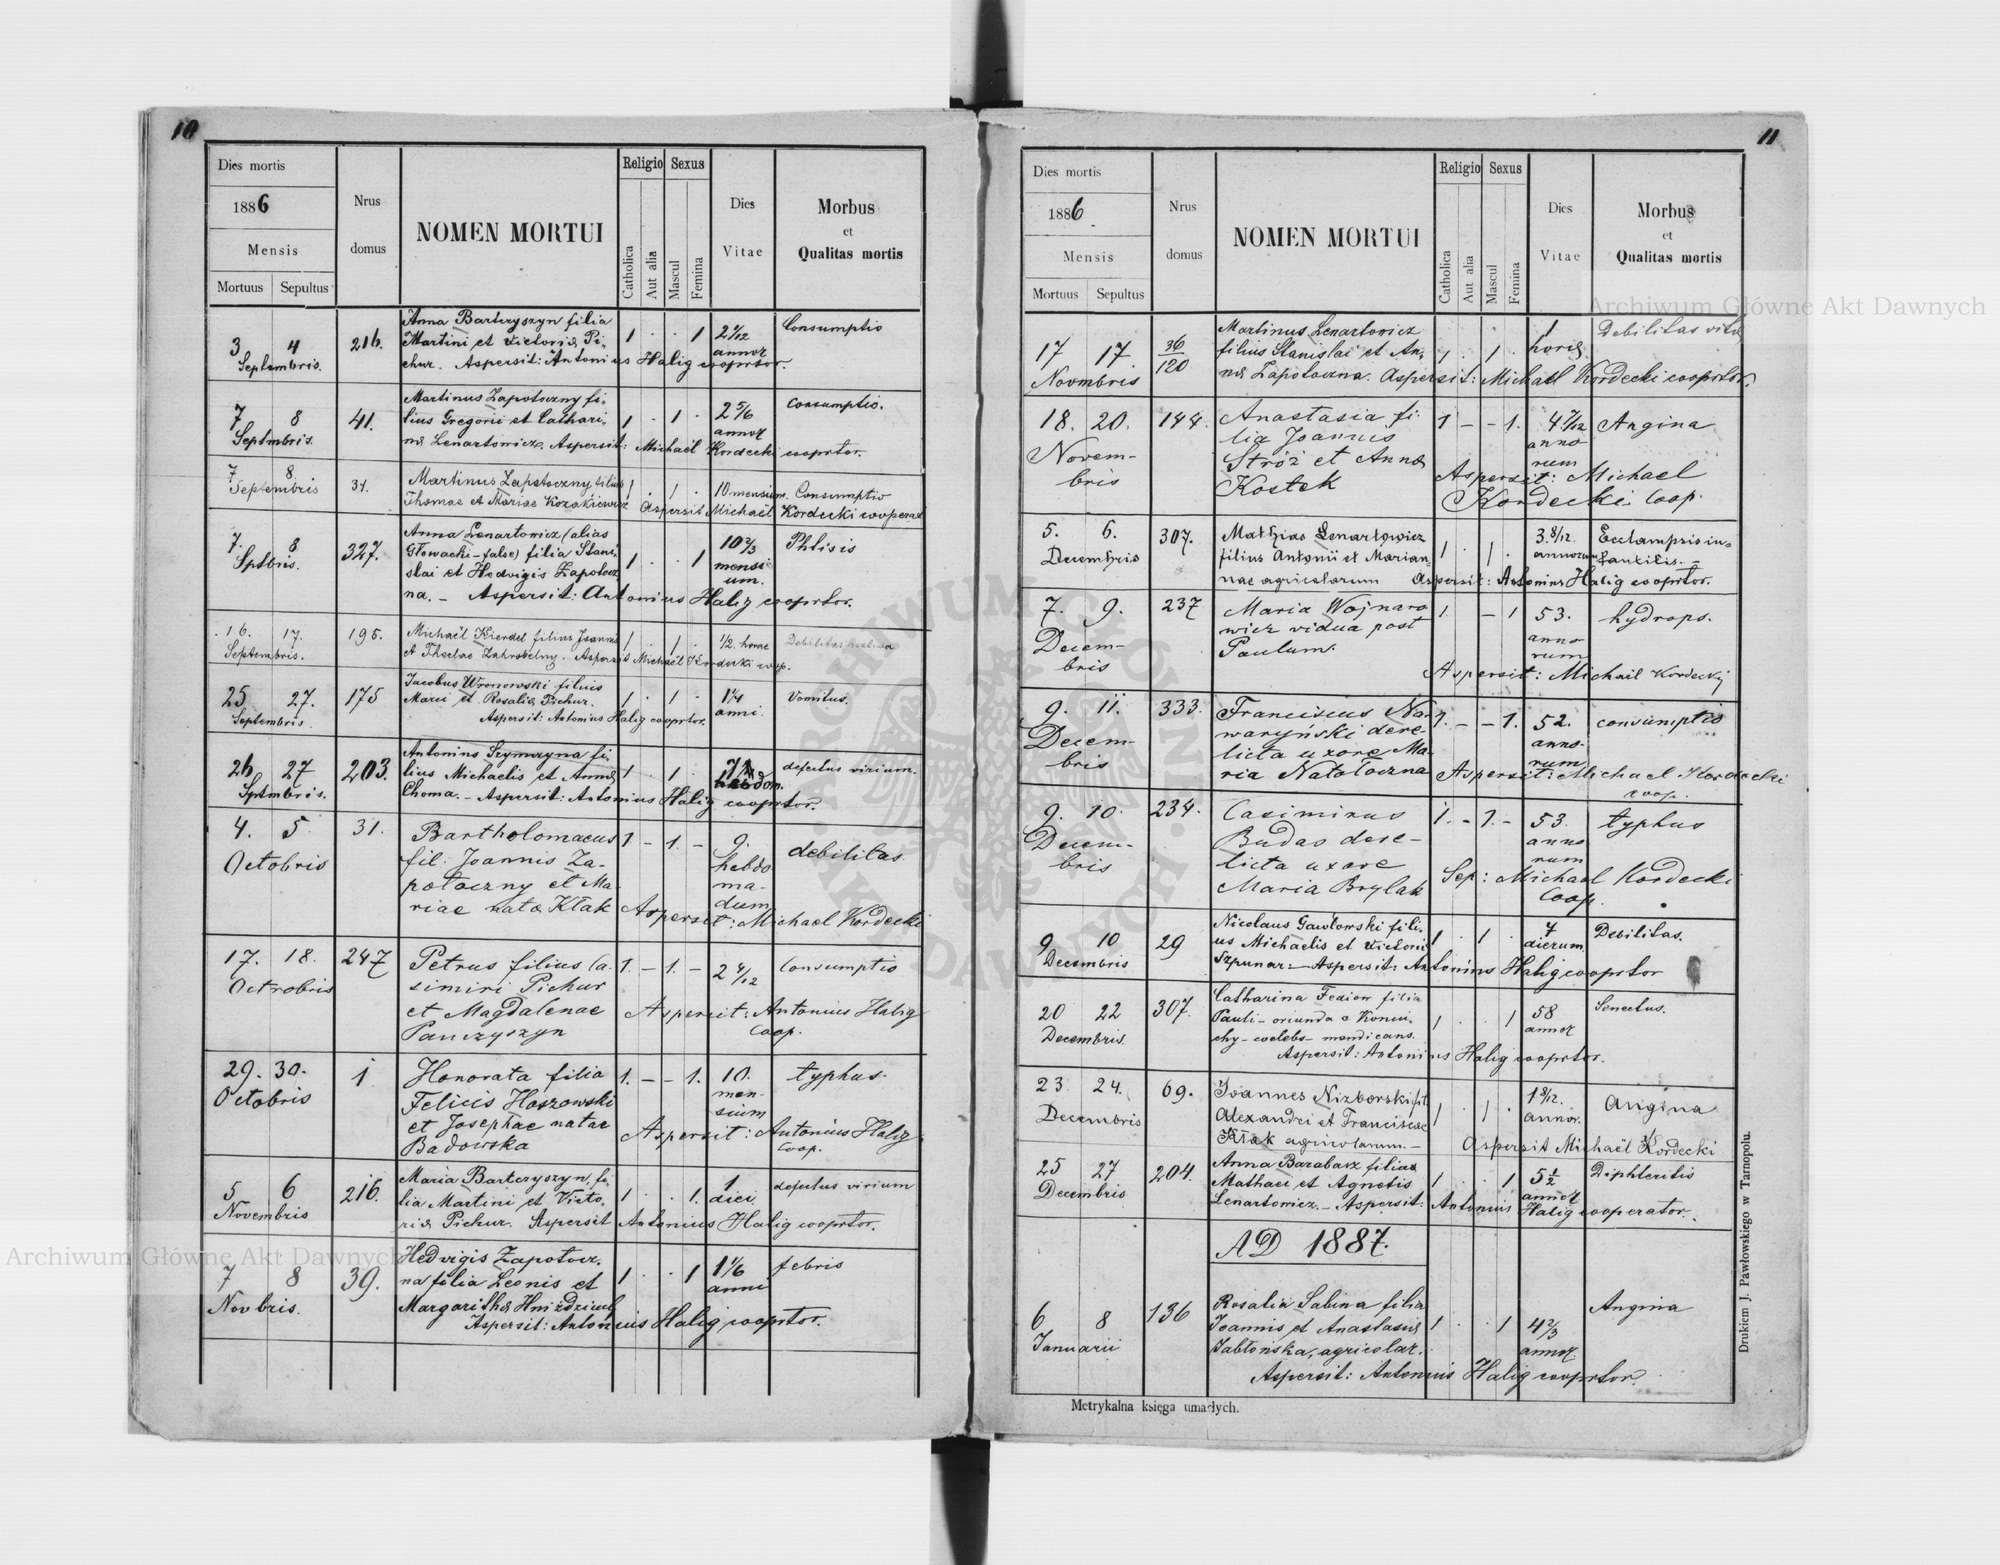 10
Dies mortis
1886
Mensis
Mortuus Sepultus
Nrus
domus
NOMEN MORTUI
Religio Sexus
Catholica
Aut alia
Mascul
Femina
Dies
Vitae
Morbus
et
Qualitas mortis
3 4
Septembris.
216.
Anna Bartczyszyn filia
Martini et Victoriæ Pi-
chur. Aspersit: Antonius Halig cooprtor.
1 . . 1
2 1/12
annor
Consumptio
7 8
Septmbris.
41.
Martinus Zapotoczny fi-
lius Gregorii et Cathari-
næ Lenartowicz. Aspersit: Michaël Kordecki cooprtor.
1 . 1 .
2 5/6
annor
Consumptio.
7 8.
Septembris
31.
Martinus Zapotoczny, filius
Thomae et Mariae Kozakiewicz Aspersit Michaël Kordecki cooperat
1 . 1 .
10 mensium.
Consumptio
7. 8
Sptbris.
327.
Anna Lenartowicz (alias
Głowacki-false) filia Stani-
slai et Hedvigis Zapotocz-
na. - Aspersit: Antonius Halig cooprtor.
1 . . 1
10 2/3
mensi-
um.
Phtisis
16. 17.
Septembris.
195.
Michaël Kierdel filius Joannis
et Theclae Zahrobelny. Aspersit Michaël Kordecki coop.
1 . 1 .
1/2 horae
Debilitas
25 27.
Septembris.
175
Jacobus Wronowski filius
Marci et Rosaliæ Pichur.
Aspersit: Antonius Halig cooprtor.
1 . 1 .
1 1/4
anni.
Vomitus.
26 27
Sptmbris.
203.
Antonius Szymczyna fi-
lius Michaelis et Annæ
Choma. - Aspersit: Antonius Halig cooprtor.
1 . 1 .
hebdom.
defectus virium.
4. 5
Octobris
31.
Bartholomaeus
fil. Joannis Za-
potoczny et Ma-
riae natæ Kłak Aspersit: Michael Kordecki
1. - 1. -
9.
hebdo-
ma-
dum
debilitas.
17. 18.
Octrobris
247
Petrus filius Ca-
simiri Pichur
et Magdalenae
Panczyszyn
1. - 1. -
2 4/12
Consumptio
Aspersit: Antonius Halig
Coop.
29. 30.
Octobris
1
Honorata filia
Felicis Hoszowski
et Josephae natae
Badowska
1. - - 1.
10.
men-
sium
typhus.
Aspersit: Antonius Halig
Coop.
5 6
Novembris
216.
Maria Bartczyszyn, fi-
lia Martini et Victo-
riæ Pichur. Aspersit Antonius Halig cooprtor.
1 . . 1.
1
diei
defectus virium
7 8
Novbris.
39.
Hedvigis Zapotocz-
na filia Leonis et
Margarithæ Hniździuch
Aspersit: Antonius Halig cooprtor.
1 . . 1
1 1/6
anni
febris
11
Dies mortis
1886.
Mensis
Mortuus Sepultus
Nrus
domus
NOMEN MORTUI
Religio Sexus
Catholica
Aut alia
Mascul
Femina
Dies
Vitae
Morbus
et
Qualitas mortis
17 17.
Novmbris
36
120
Martinus Lenartowicz
filius Stanislai et An-
næ Zapotoczna. Aspersit: Michael Kordecki cooprtor.
1 . 1 .
1
horæ
Debilitas vitæ
18. 20.
Novem-
bris
144.
Anastasia fi-
lia Joannis
Stróż et Annæ
Kostek
1 - - 1.
4 7/12
anno-
rum
Angina
Aspersit: Michael
Kordecki. Coop.
5. 6.
Decembris
307.
Mathias Lenartowicz
filius Antonii et Marian-
nae agricolarum Aspersit: Antonius Halig cooprtor.
1 . 1 .
3 8/12.
annorum
Ecclampsis in-
fantilis. -
7. 9.
Decem-
bris
237
Maria Wojnaro
wicz vidua post
Paulum.
1. - 1
53.
anno-
rum
hydrops.
Aspersit: Michaël Kordecki
9. 11.
Decem-
bris
333.
Franciscus Na-
waryński dere-
licta uxore Ma-
ria Natołoczna Aspersit: Michael Kordecki
coop.
1. - - 1.
52.
anno-
rum
consumptio
9. 10.
Decem-
bris
234.
Casimirus
Budas dere-
licta uxore
Maria Brylak
1. - 1. -
53.
anno
rum
typhus
Sep: Michael Kordecki
Coop.
9 10
Decembris
29
Nicolaus Gawłowski fili-
us Michaelis et Victoriæ
Szpunar. - Aspersit: Antonius Halig cooprtor
1 . 1 .
7
dierum
Debilitas.
20 22
Decembris.
307.
Catharina Fedion filia
Pauli - oriunda e Koniu-
chy - coelebs - mendicans.
Aspersit: Antonius Halig cooprtor.
1 . . 1
58
annor
Senectus.
23 24.
Decembris
69.
Joannes Nizborski fil.
Alexandri et Franciscae
Kłak agricolarum. -
1 . 1 .
1 8/12.
annor.
Angina
Aspersit Michaël Kordecki
25 27
Decembris
204.
Anna Barabasz filia
Mathaei et Agnetis
Lenartowicz. - Aspersit: Antonius Halig cooperator.
1 . . 1
5 1/2
annor
Diphteritis
AD 1887.
6 8
Januarii
136
Rosalia Sabina filia
Joannis et Anastasiæ
Jabłońska, agricolar.
Aspersit: Antonius Halig cooprtor.
1 . . 1
4 2/3
annor.
Angina
Metrykalna księga umarłych.
Drukiem J. Pawłowskiego w Tarnopolu.
Archiwum Główne Akt Dawnych
Archiwum Główne Akt Dawnych
ARCHIWUM GŁÓWNE AKT DAWNYCH